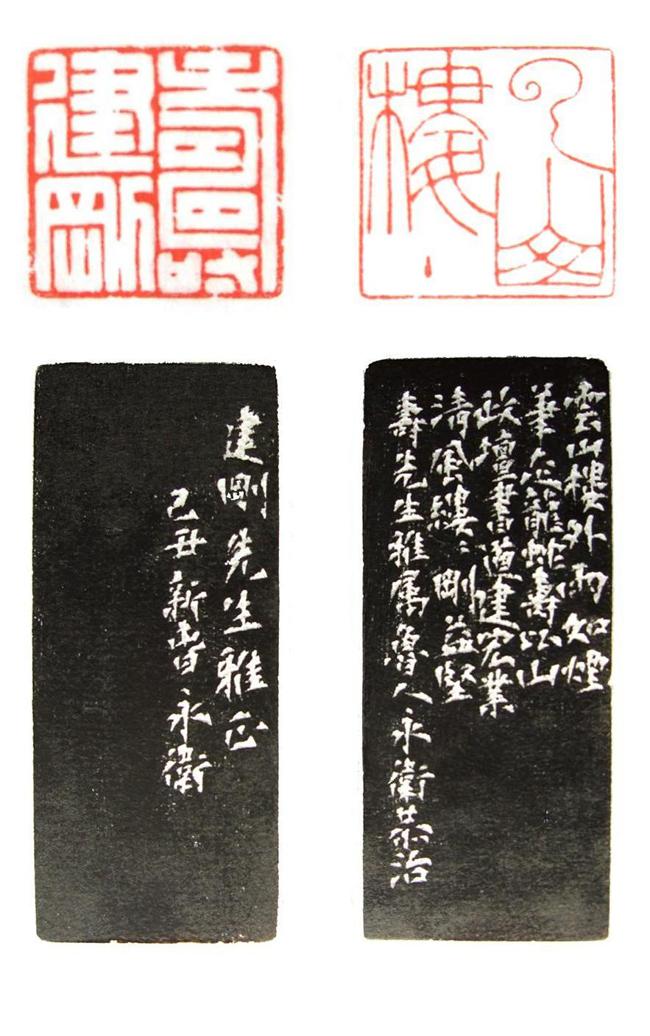 壽建剛
云山樓
建剛先生雅正
己丑新春永衛
雲山樓外雨如煙
筆走龍蛇壽比山
政壇書道建宏業
清風縷〻剛益堅
壽先生雅屬魯人永衛恭治